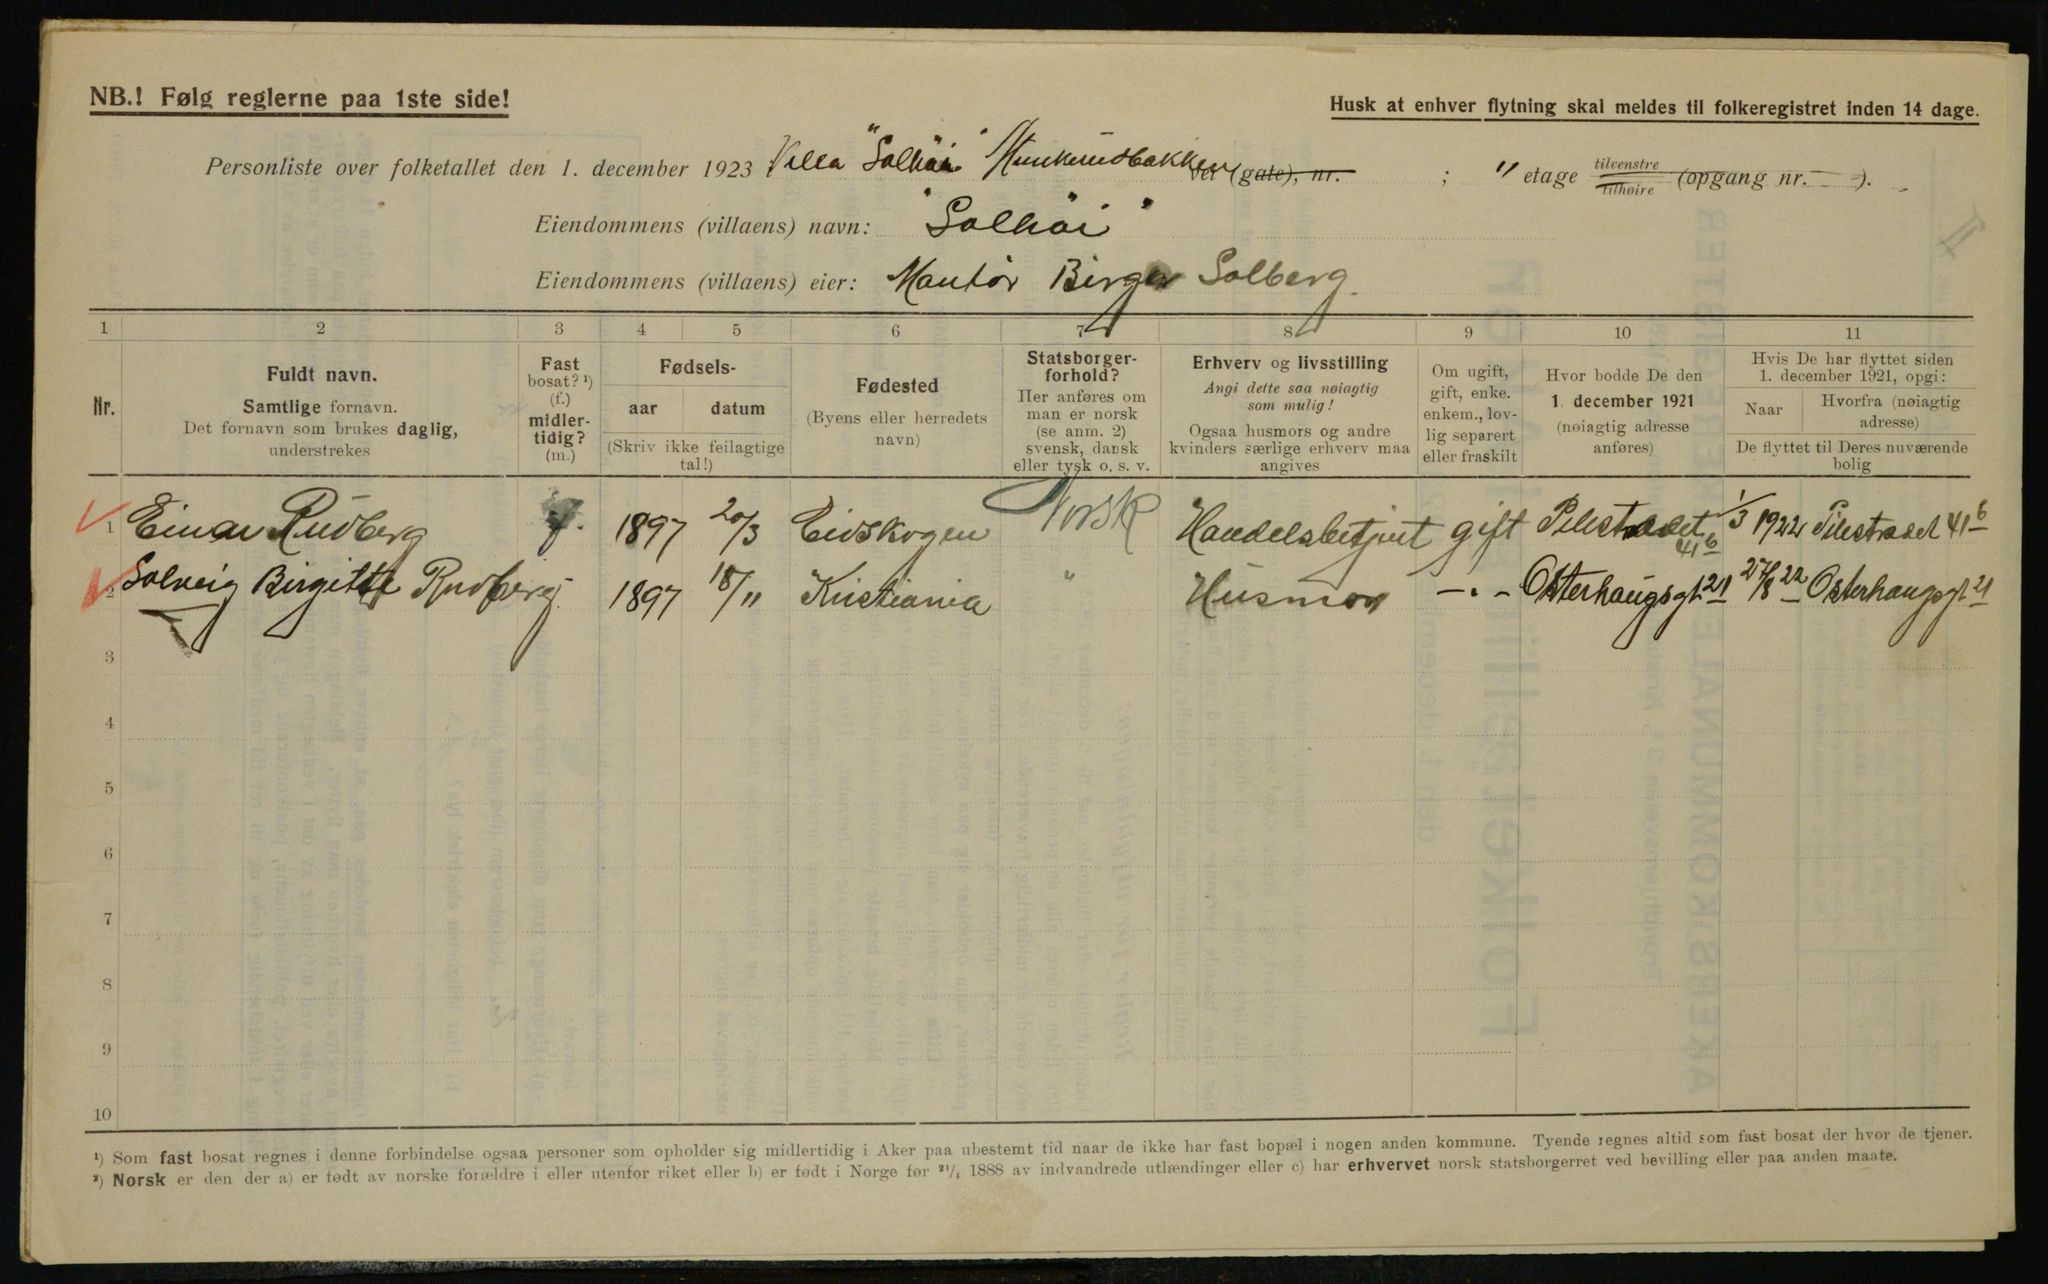 NB.! Følg reglerne paa 1ste side!
Husk at enhver flytning skal meldes til folkeregistret inden 14 dage.
Personliste over folketallet den 1. december 1923 Villa "Solhöi" (gate), nr. ; " etage tilvenstre tilhøire (opgang nr. ).
Eiendommens (villaens) navn: "Solhöi"
Eiendommens (villaens) eier: Birger Solberg.
1 2 3 4 5 6 7 8 9 10 11
Nr.
Fuldt navn.
Samtlige fornavn.
Det fornavn som brukes daglig,
understrekes
Fast
bosat? ¹)
(f.)
midler-
tidig?
(m.)
Fødsels-
aar datum
(Skriv ikke feilagtige
tal!)
Fødested
(Byens eller herredets
navn)
Statsborger-
forhold?
Her anføres om
man er norsk
(se anm. 2)
svensk, dansk
eller tysk o. s. v.
Erhverv og livsstilling
Angi dette saa nøiagtig
som mulig!
Ogsaa husmors og andre
kvinders særlige erhverv maa
angives
Om ugift,
gift, enke.
enkem., lov-
lig separert
eller fraskilt
Hvor bodde De den
1. december 1921
(nøiagtig adresse
anføres)
Hvis De har flyttet siden
1. december 1921, opgi:
Naar Hvorfra (nøiagtig
adresse)
De flyttet til Deres nuværende
bolig
1 Einar Rudberg f. 1897 20/3 Eidskogen Norsk Handelsbetjent gift Pilestredet 41 b 1/3 1922 Pilestredet 41 b
2 Solveig Birgitte Rudberg 1897 18/11 Kristiania " Husmor -"- Osterhaugsgt. 21 27/8 22 Osterhaugsgt 21
3
4
5
6
7
8
9
10
¹) Som fast bosat regnes i denne forbindelse ogsaa personer som opholder sig midlertidig i Aker paa ubestemt tid naar de ikke har fast bopæl i nogen anden kommune. Tyende regnes altid som fast bosat der hvor de tjener.
²) Norsk er den der a) er født av norske forældre i eller utenfor riket eller b) er født i Norge før ²¹/₄ 1888 av indvandrede utlændinger eller c) har erhvervet norsk statsborgerret ved bevilling eller paa anden maate.